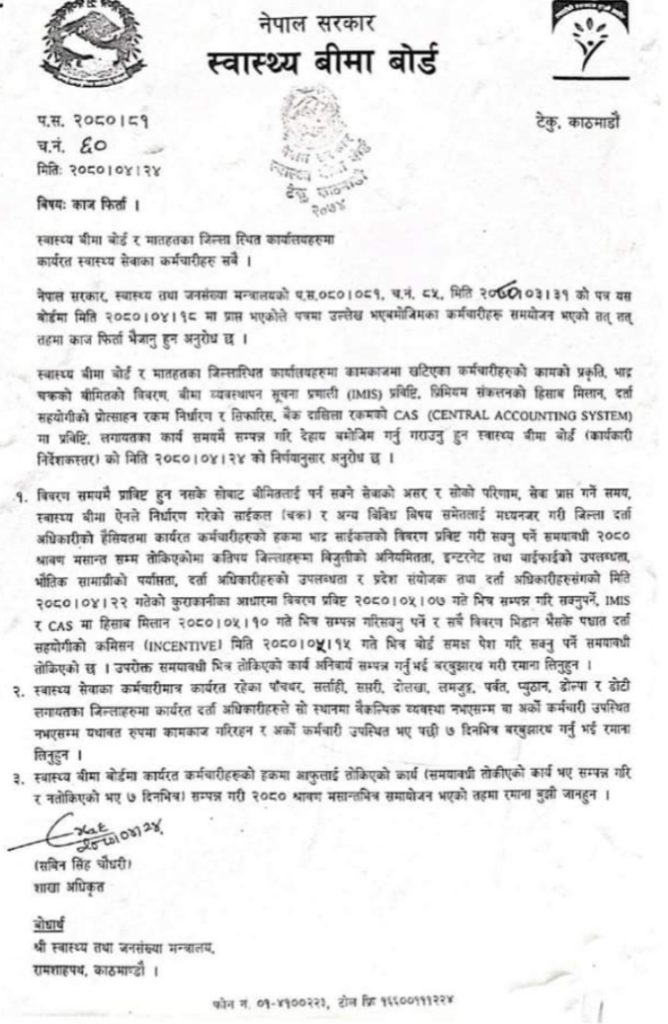 नेपाल सरकार
स्वास्थ्य बीमा बोर्ड
प.स. २०८०।८१
टेकु, काठमाडौ
च.नं. ६०
मितिः २०८०।०४।२४
नेपाल सरकार
स्वास्थ्य बीमा बोर्ड
टेकु, काठमाडौं
२०७४
विषयः काज फिर्ता ।
स्वास्थ्य बीमा बोर्ड र मातहतका जिल्ला स्थित कार्यालयहरुमा
कार्यरत स्वास्थ्य सेवाका कर्मचारीहरु सबै ।
नेपाल सरकार, स्वास्थ्य तथा जनसंख्या मन्त्रालयको प.स.०८०।०८१, च.नं. ८५, मिति २०८०।०३।३१ को पत्र यस
बोर्डमा मिति २०८०।०४।१८ मा प्राप्त भएकोले पत्रमा उल्लेख भएबमोजिमका कर्मचारीहरू समयोजन भएको तत् तत्
तहमा काज फिर्ता भैजानु हुन अनुरोध छ ।
स्वास्थ्य बीमा बोर्ड र मातहतका जिल्लास्थित कार्यालयहरुमा कामकाजमा खटिएका कर्मचारीहरुको कामको प्रकृति, भाद्र
चक्रको बीमितको विवरण, बीमा व्यवस्थापन सूचना प्रणाली (IMIS) प्रविष्टि, प्रिमियम संकलनको हिसाब मिलान, दर्ता
सहयोगीको प्रोत्साहन रकम निर्धारण र सिफारिस, बैंक दाखिला रकमको CAS (CENTRAL ACCOUNTING SYSTEM)
मा प्रविष्टि, लगायतका कार्य समयमै सम्पन्न गरि देहाय बमोजिम गर्नु गराउनु हुन स्वास्थ्य बीमा बोर्ड (कार्यकारी
निर्देशकस्तर) को मिति २०८०।०४।२४ को निर्णयानुसार अनुरोध छ ।
१. विवरण समयमै प्राविष्ट हुन नसके सोबाट बीमितलाई पर्न सक्ने सेवाको असर र सोको परिणाम, सेवा प्राप्त गर्ने समय,
स्वास्थ्य बीमा ऐनले निर्धारण गरेको साईकल (चक्र) र अन्य विविध बिषय समेतलाई मध्यनजर गरी जिल्ला दर्ता
अधिकारीको हैसियतमा कार्यरत कर्मचारीहरुको हकमा भाद्र साईकलको विवरण प्रविष्ट गरी सक्नु पर्ने समयावधी २०८०
श्रावण मसान्त सम्म तोकिएकोमा कतिपय जिल्लाहरुमा बिजुलीको अनियमितता, इन्टरनेट तथा वाईफाईको उपलब्धता,
भौतिक सामाग्रीको पर्याप्तता, दर्ता अधिकारीहरुको उपलब्धता र प्रदेश संयोजक तथा दर्ता अधिकारीहरुसंगको मिति
२०८०।०४।२२ गतेको कुराकानीका आधारमा विवरण प्रविष्ट २०८०।०५।०७ गते भित्र सम्पन्न गरि सक्नुपर्ने, IMIS
र CAS मा हिसाब मिलान २०८०।०५।१० गते भित्र सम्पन्न गरिसक्नु पर्ने र सबै विवरण भिडान भैसके पश्चात दर्ता
सहयोगीको कमिसन (INCENTIVE) मिति २०८०।०५।१५ गते भित्र बोर्ड समक्ष पेश गरि सक्नु पर्ने समयावधी
तोकिएको छ । उपरोक्त समयावधी भित्र तोकिएको कार्य अनिवार्य सम्पन्न गर्नु भई बरबुझारथ गरी रमाना लिनुहुन ।
२. स्वास्थ्य सेवाका कर्मचारीमात्र कार्यरत रहेका पाँचथर, सर्लाही, सप्तरी, दोलखा, लमजुङ, पर्वत, प्युठान, डोल्पा र डोटी
लगायतका जिल्लाहरुमा कार्यरत दर्ता अधिकारीहरुले सो स्थानमा वैकल्पिक व्यवस्था नभएसम्म वा अर्को कर्मचारी उपस्थित
नभएसम्म यथावत रुपमा कामकाज गरिरहन र अर्को कर्मचारी उपस्थित भए पछी ७ दिनभित्र बरबुझारथ गर्नु भई रमाना
लिनुहुन ।
३. स्वास्थ्य बीमा बोर्डमा कार्यरत कर्मचारीहरुको हकमा आफुलाई तोकिएको कार्य (समयावधी तोकीएको कार्य भए सम्पन्न गरि
र नतोकिएको भए ७ दिनभित्र) सम्पन्न गरी २०८० श्रावण मसान्तभित्र समायोजन भएको तहमा रमाना बुझी जानुहुन ।
२०८०।०४।२४
(सबिन सिंह चौधरी)
शाखा अधिकृत
बोधार्थ
श्री स्वास्थ्य तथा जनसंख्या मन्त्रालय,
रामशाहपथ, काठमाण्डौ ।
फोन नं. ०१-४१००२२३, टोल फ्रि १६६००१११२२४